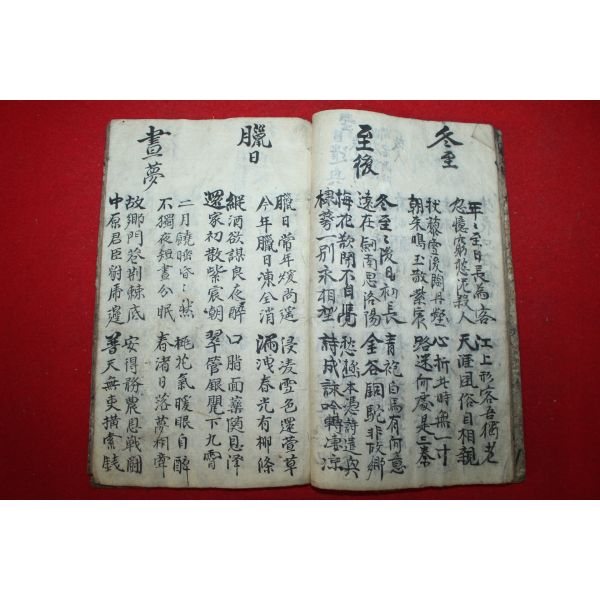 冬至
年〻至日長為客 江上形容吾獨老
忽憶窮愁泥殺人 天涯風俗自相親
杖藜雪後臨丹壑 心折此時無一寸
朝來鳴玉散紫宸 路迷何處是三秦
至後
冬至〻後日初長 青袍白馬有何意
遠在劍南思洛陽 金谷銅駝非故鄉
梅花欲開不自覺 愁極本憑詩遣興
棣萼一別永相望 詩成詠吟轉凄凉
臘日
臘日常年煖尚遙 浸凌雪色還萱草
今年臘日凍全消 漏洩春光有柳條
縱酒欲謀良夜醉 口脂面藥隨恩澤
還家初散紫宸朝 翠管銀甖下九霄
晝夢
二月饒睡昏〻然 桃花氣暖眼自醉
不獨夜短晝分眠 春渚日落夢相牽
故鄉門巷荊棘底 安得務農息戰鬪
中原君臣豺虎邊 普天無吏橫索錢